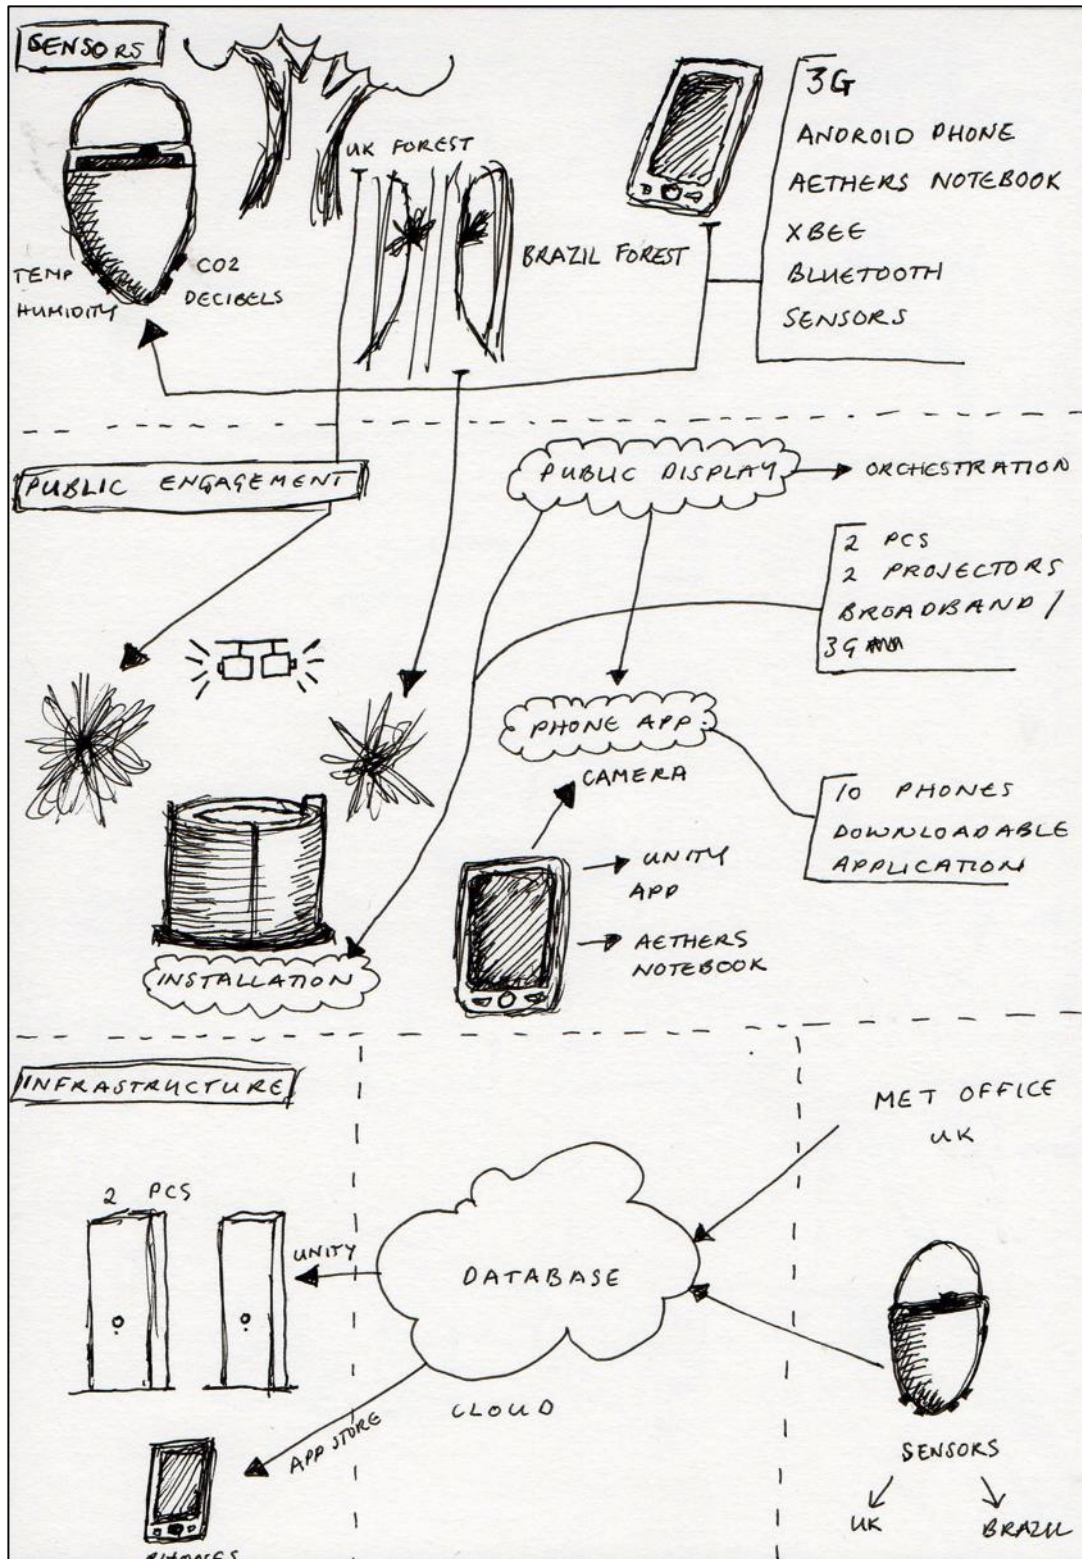 SENSORS
UK FOREST
BRAZIL FOREST
TEMP
HUMIDITY
CO2
DECIBELS
3G
ANDROID PHONE
AETHERS NOTEBOOK
XBEE
BLUETOOTH
SENSORS
PUBLIC ENGAGEMENT
PUBLIC DISPLAY
ORCHESTRATION
2 PCS
2 PROJECTORS
BROADBAND /
3G
PHONE APP
CAMERA
10 PHONES
DOWNLOADABLE
APPLICATION
UNITY
APP
AETHERS
NOTEBOOK
INSTALLATION
INFRASTRUCTURE
MET OFFICE
UK
2 PCS
UNITY
DATABASE
CLOUD
APP STORE
SENSORS
UK
BRAZIL
PHONES